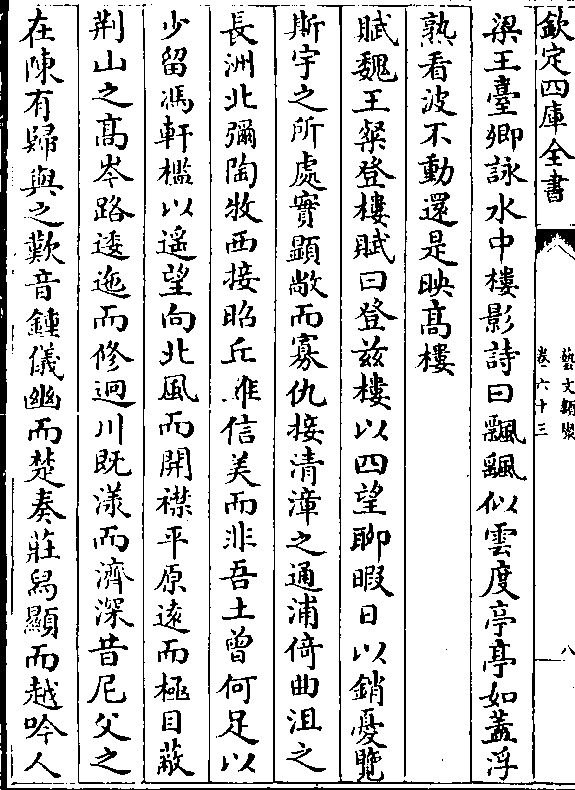 欽定四庫全書
藝文類聚
卷六十三
八
梁王臺卿詠水中樓影詩曰飄飄似雲度亭亭如蓋浮
熟看波不動還是映髙樓
賦魏王粲登樓賦曰登兹樓以四望聊暇日以銷憂覽
斯宇之所處實顯敞而寡仇接清漳之通浦倚曲沮之
長洲北彌陶牧西接昭丘雖信美而非吾土曾何足以
少留馮軒檻以遥望向北風而開襟平原逺而極目蔽
荆山之髙岑路逶迤而修迥川既漾而濟深昔尼父之
在陳有歸與之歎音鍾儀幽而楚奏莊舄顯而越吟人